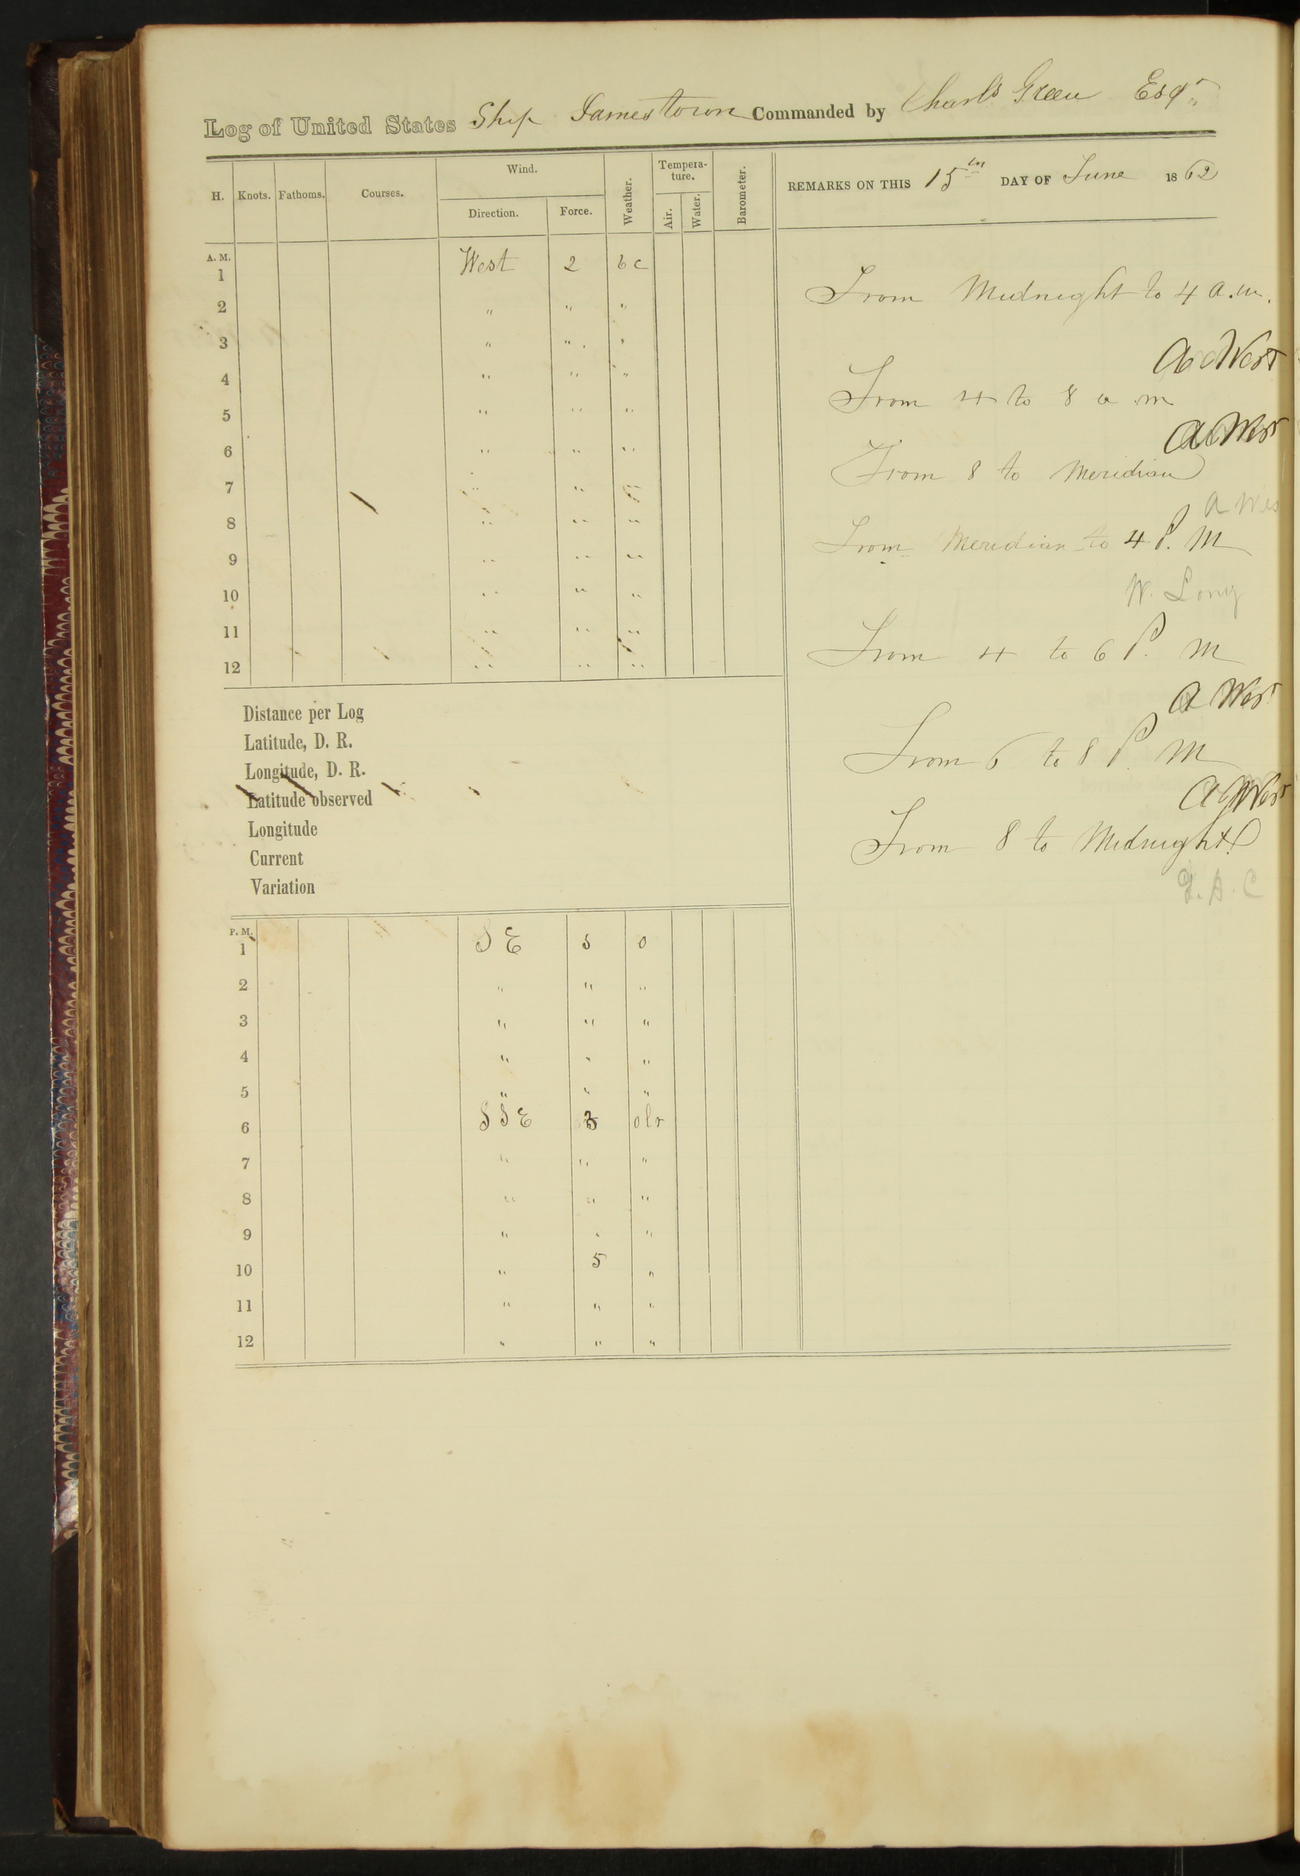 Log of United States Ship Jamestown Commanded by Charls Green Esqr
H. Knots. Fathoms. Courses. Wind. Direction. Force. Weather. Temperature. Air. Water. Barometer.
REMARKS ON THIS 15th DAY OF June 1862
A. M.
1 West 2 bc
2 " " "
3 " " "
4 " " "
5 " " "
6 " " "
7 " " "
8 " " "
9 " " "
10 " " "
11 " " "
12 " " "
From Midnight to 4 a.m.
From 4 to 8 a m
A West
From 8 to Meridian
From Meridian to 4 P. M
W. Long
From 4 to 6 P. M
A West
From 6 to 8 P. M
From 8 to Midnight
Distance per Log
Latitude, D. R.
Longitude, D. R.
Latitude observed
Longitude
Current
Variation
P. M.
1 S E 5 o
2 " " "
3 " " "
4 " " "
5 " " "
6 S S E olr
7 " " "
8 " " "
9 " " "
10 " 5 "
11 " " "
12 " " "